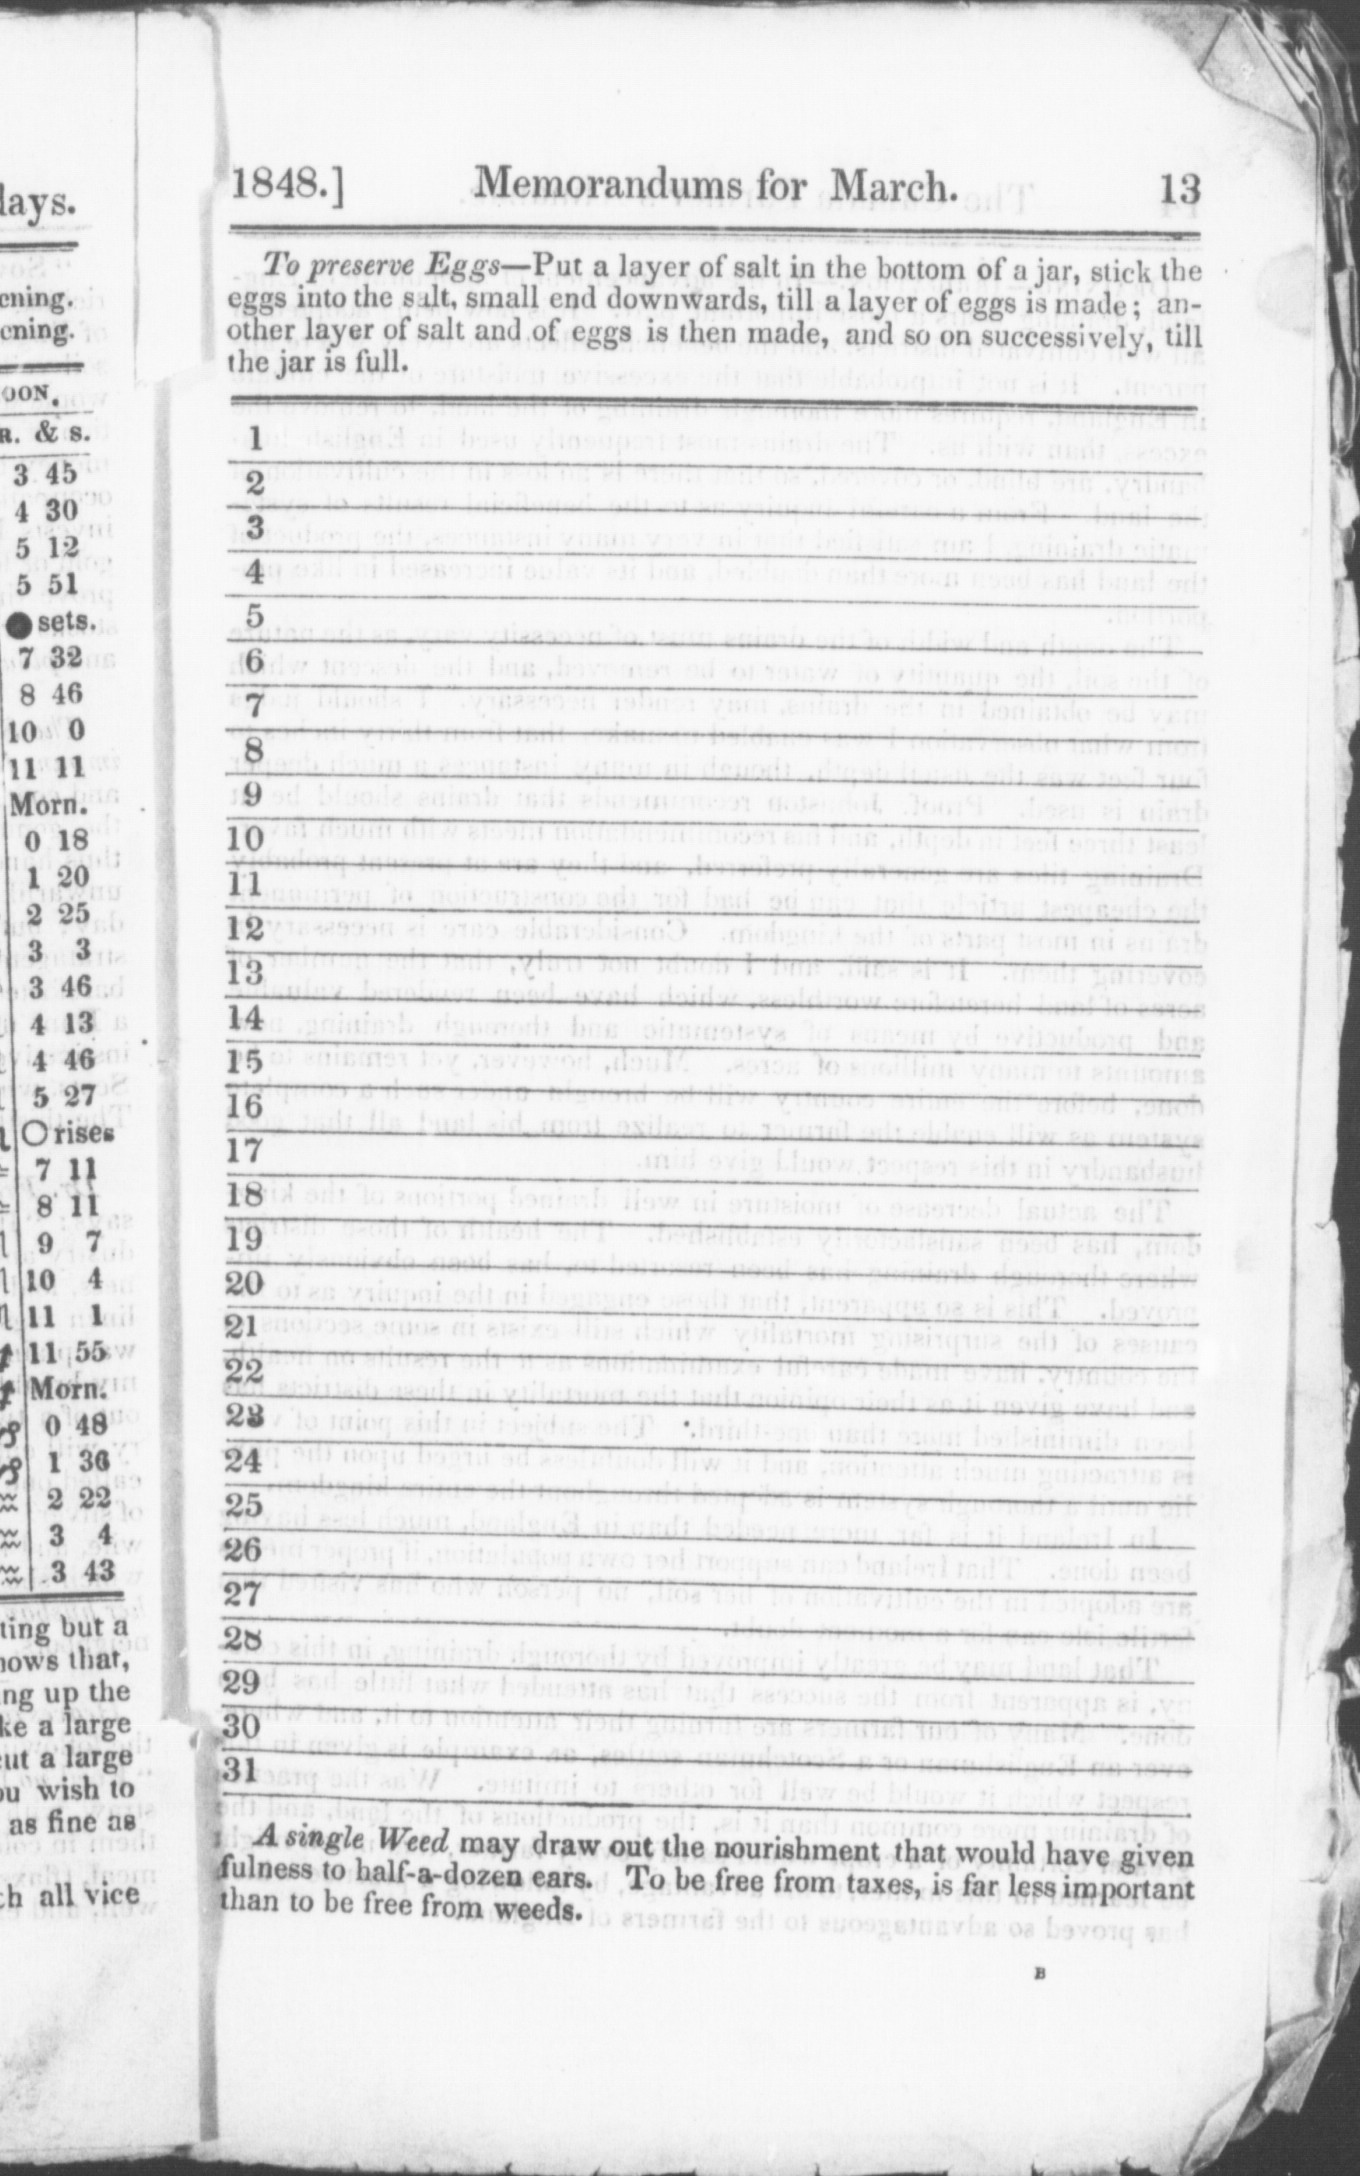 days.
ening.
ening.
OON.
R. & s.
3 45
4 30
5 12
5 51
● sets.
7 32
8 46
10 0
11 11
Morn.
0 18
1 20
2 25
3 3
3 46
4 13
4 46
5 27
○ rises
7 11
8 11
9 7
10 4
11 1
11 55
Morn.
0 48
1 36
2 22
3 4
3 43
ting but a
nows that,
ng up the
ke a large
cut a large
ou wish to
as fine as
ch all vice
1848.] Memorandums for March. 13
To preserve Eggs—Put a layer of salt in the bottom of a jar, stick the
eggs into the salt, small end downwards, till a layer of eggs is made; an-
other layer of salt and of eggs is then made, and so on successively, till
the jar is full.
1
2
3
4
5
6
7
8
9
10
11
12
13
14
15
16
17
18
19
20
21
22
23
24
25
26
27
28
29
30
31
A single Weed may draw out the nourishment that would have given
fulness to half-a-dozen ears. To be free from taxes, is far less important
than to be free from weeds.
B